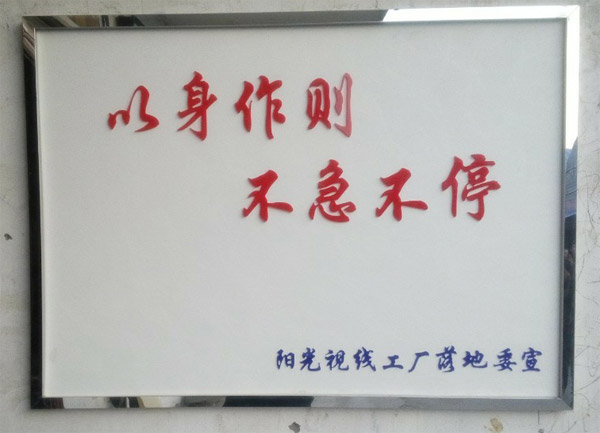 以身作则
不急不停
阳光视线工厂落地委宣